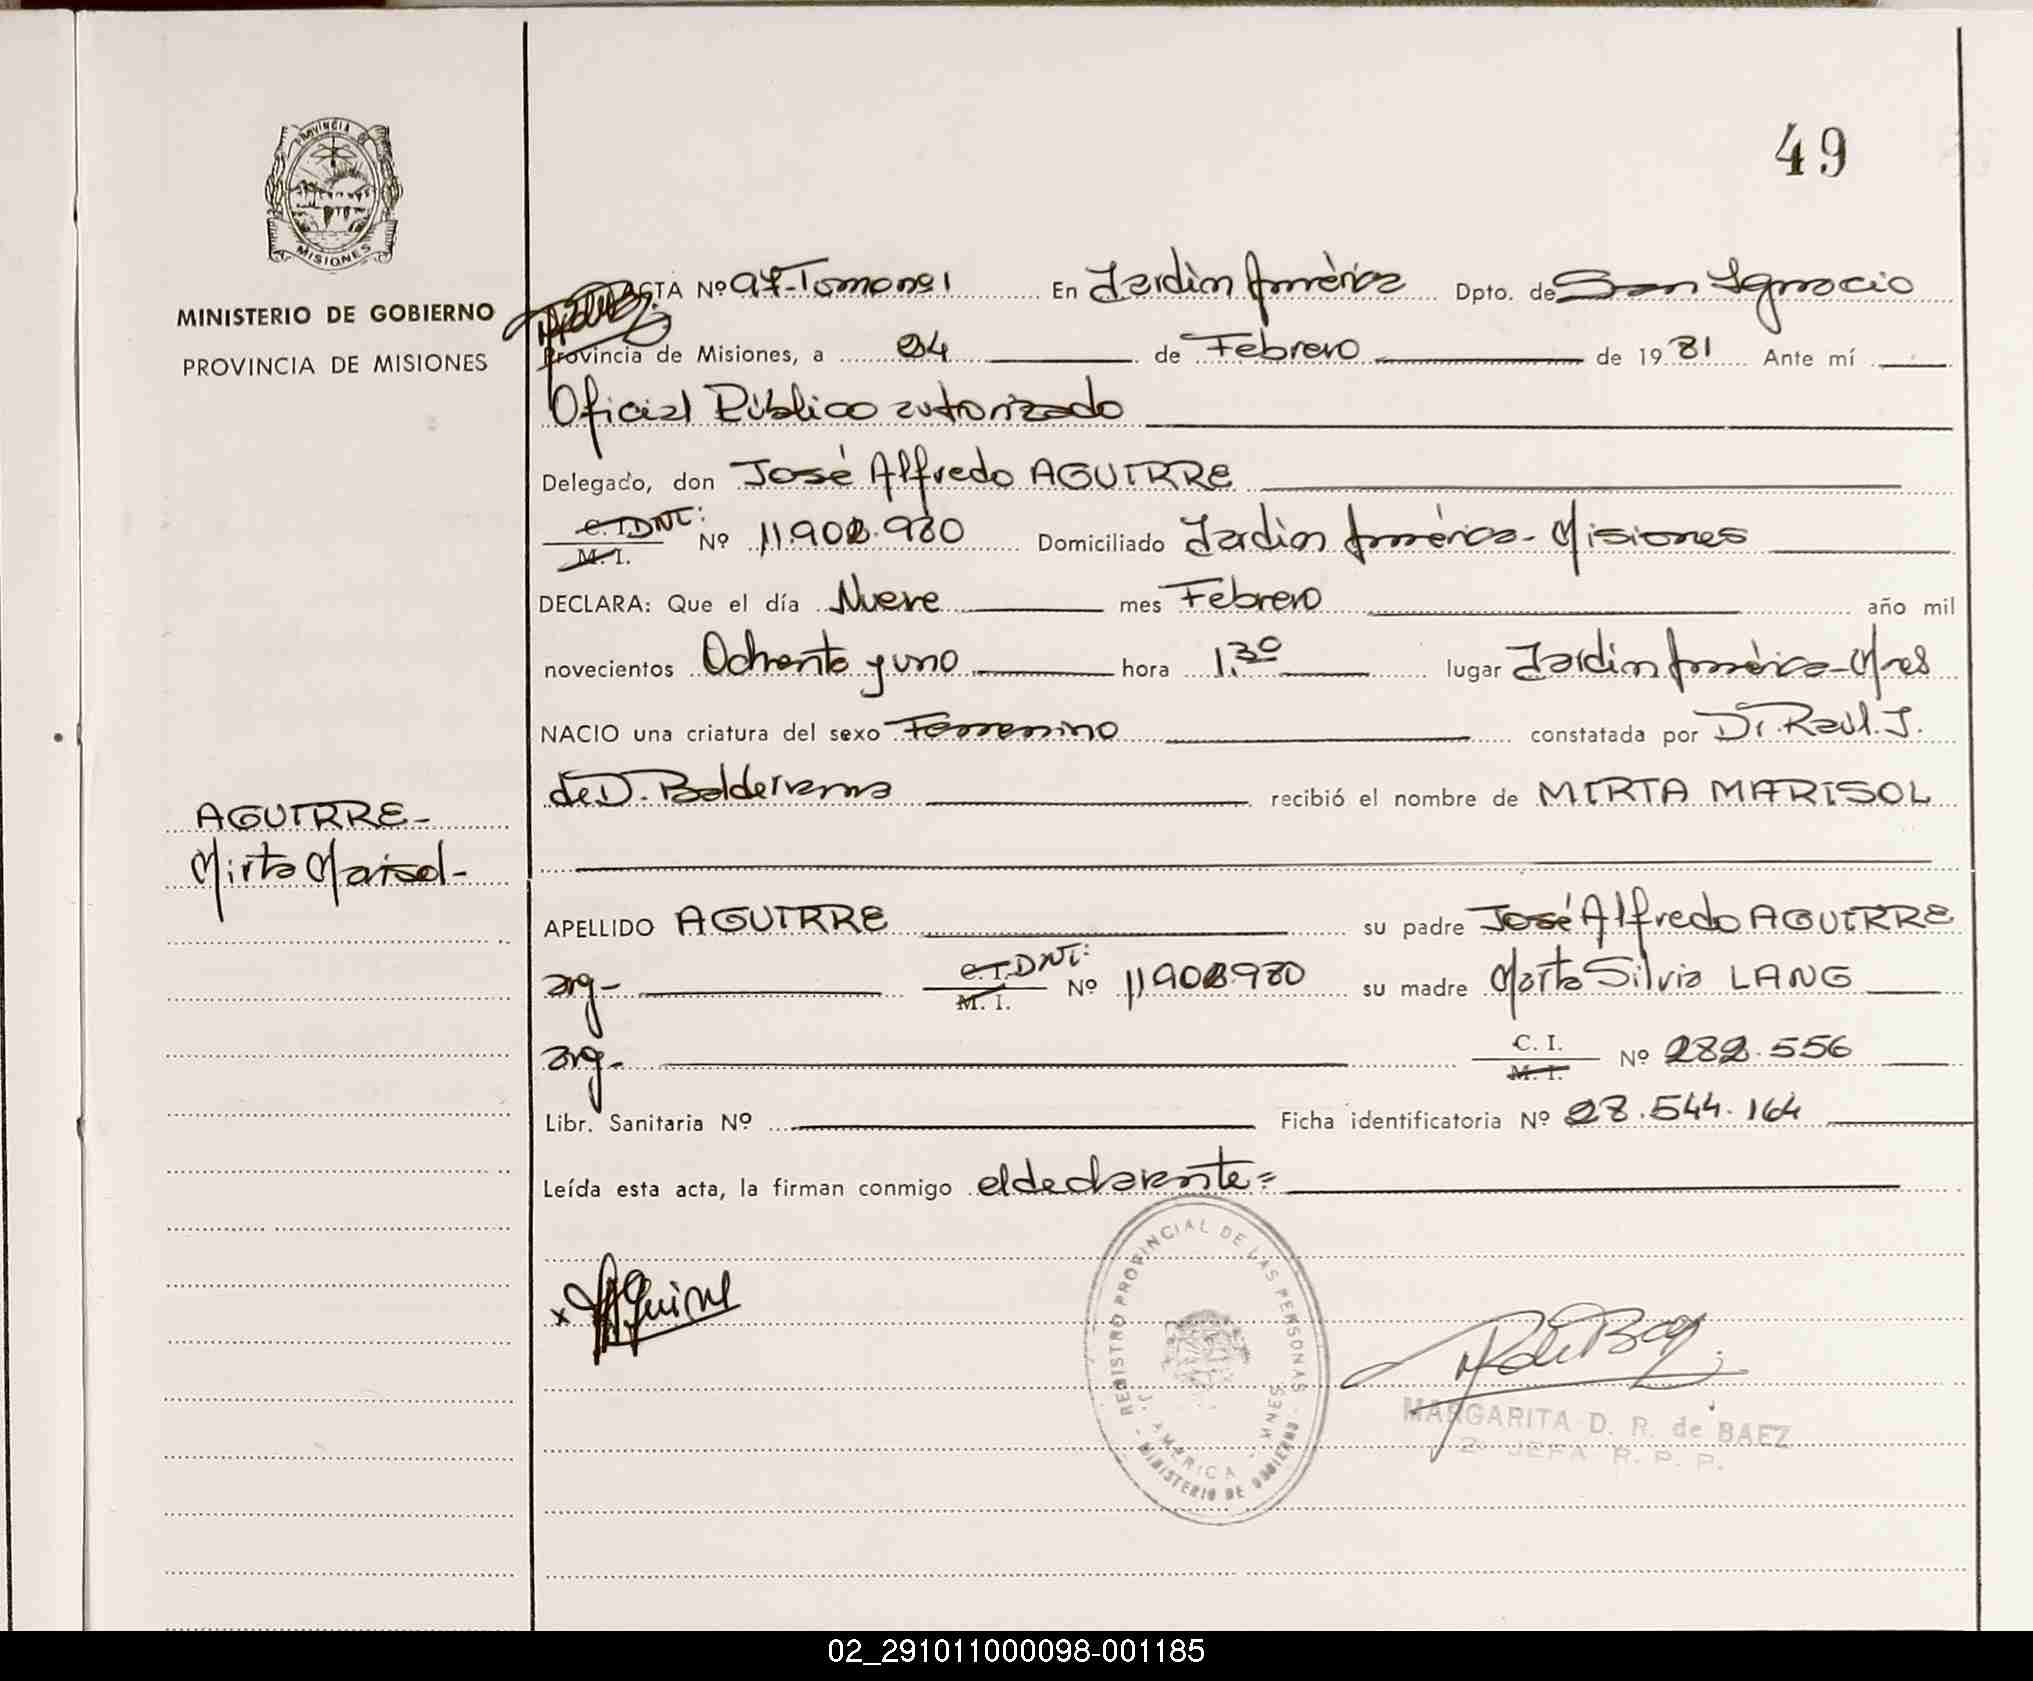 49
PROVINCIA DE
MISIONES
MINISTERIO DE GOBIERNO
PROVINCIA DE MISIONES
ACTA Nº 97-Tomo nº 1 En Jardín América Dpto. de San Ignacio
Provincia de Misiones, a 24 de Febrero de 1981 Ante mí
Oficial Público autorizado
Delegado, don José Alfredo AGUIRRE
C.I. DNI: M. I. Nº 11.902.980 Domiciliado Jardín América - Misiones
DECLARA: Que el día Nueve mes Febrero año mil
novecientos Ochenta y uno hora 1,30 lugar Jardín América - Mnes
NACIO una criatura del sexo Femenino constatada por Dr. Raúl. J.
de D. Balderrama recibió el nombre de MIRTA MARISOL
AGUIRRE-
Mirta Marisol-
APELLIDO AGUIRRE su padre José Alfredo AGUIRRE
arg- C.I. DNI: M. I. Nº 11902980 su madre Marta Silvia LANG
arg- C. I. M. I. Nº 282.556
Libr. Sanitaria Nº Ficha identificatoria Nº 28.544.164
Leída esta acta, la firman conmigo el declarante=
x Aguirre
REGISTRO PROVINCIAL DE LAS PERSONAS
J. AMERICA - MNES
- MINISTERIO DE GOBIERNO -
R de Baez
MARGARITA D. R. de BAEZ
2º JEFA R. P. P.
02_291011000098-001185